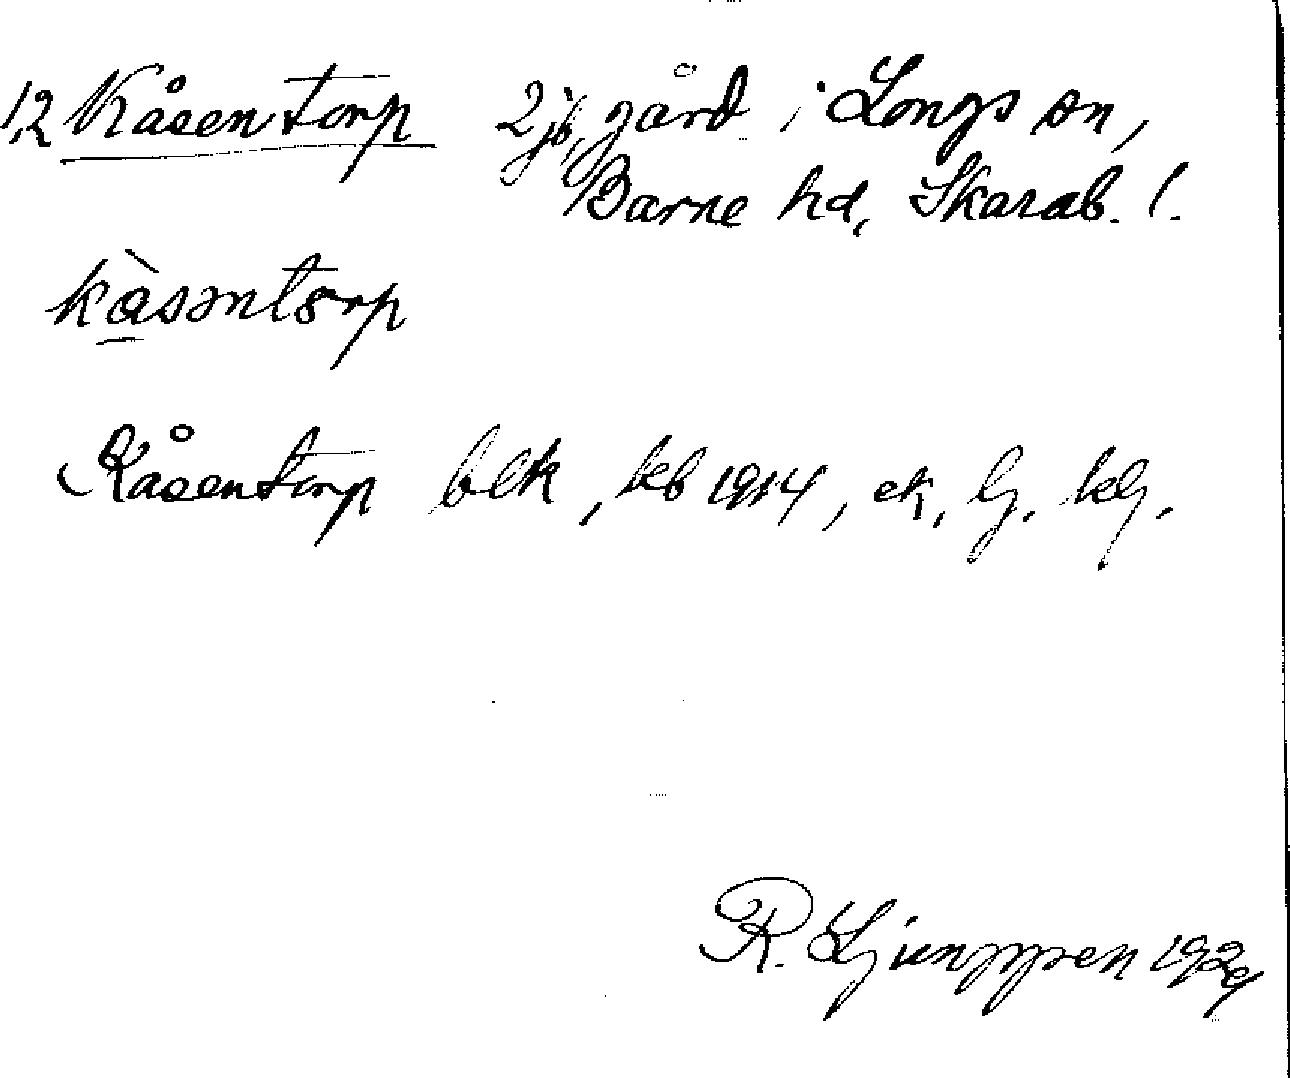 12 Kåsentorp 2 jb, gård i Longs sn,
Barne hd, Skarab. l.
kàsəntorp
Kåsentorp blk, kb 1914, ek, lj. klj.
R. Ljunggren 1924